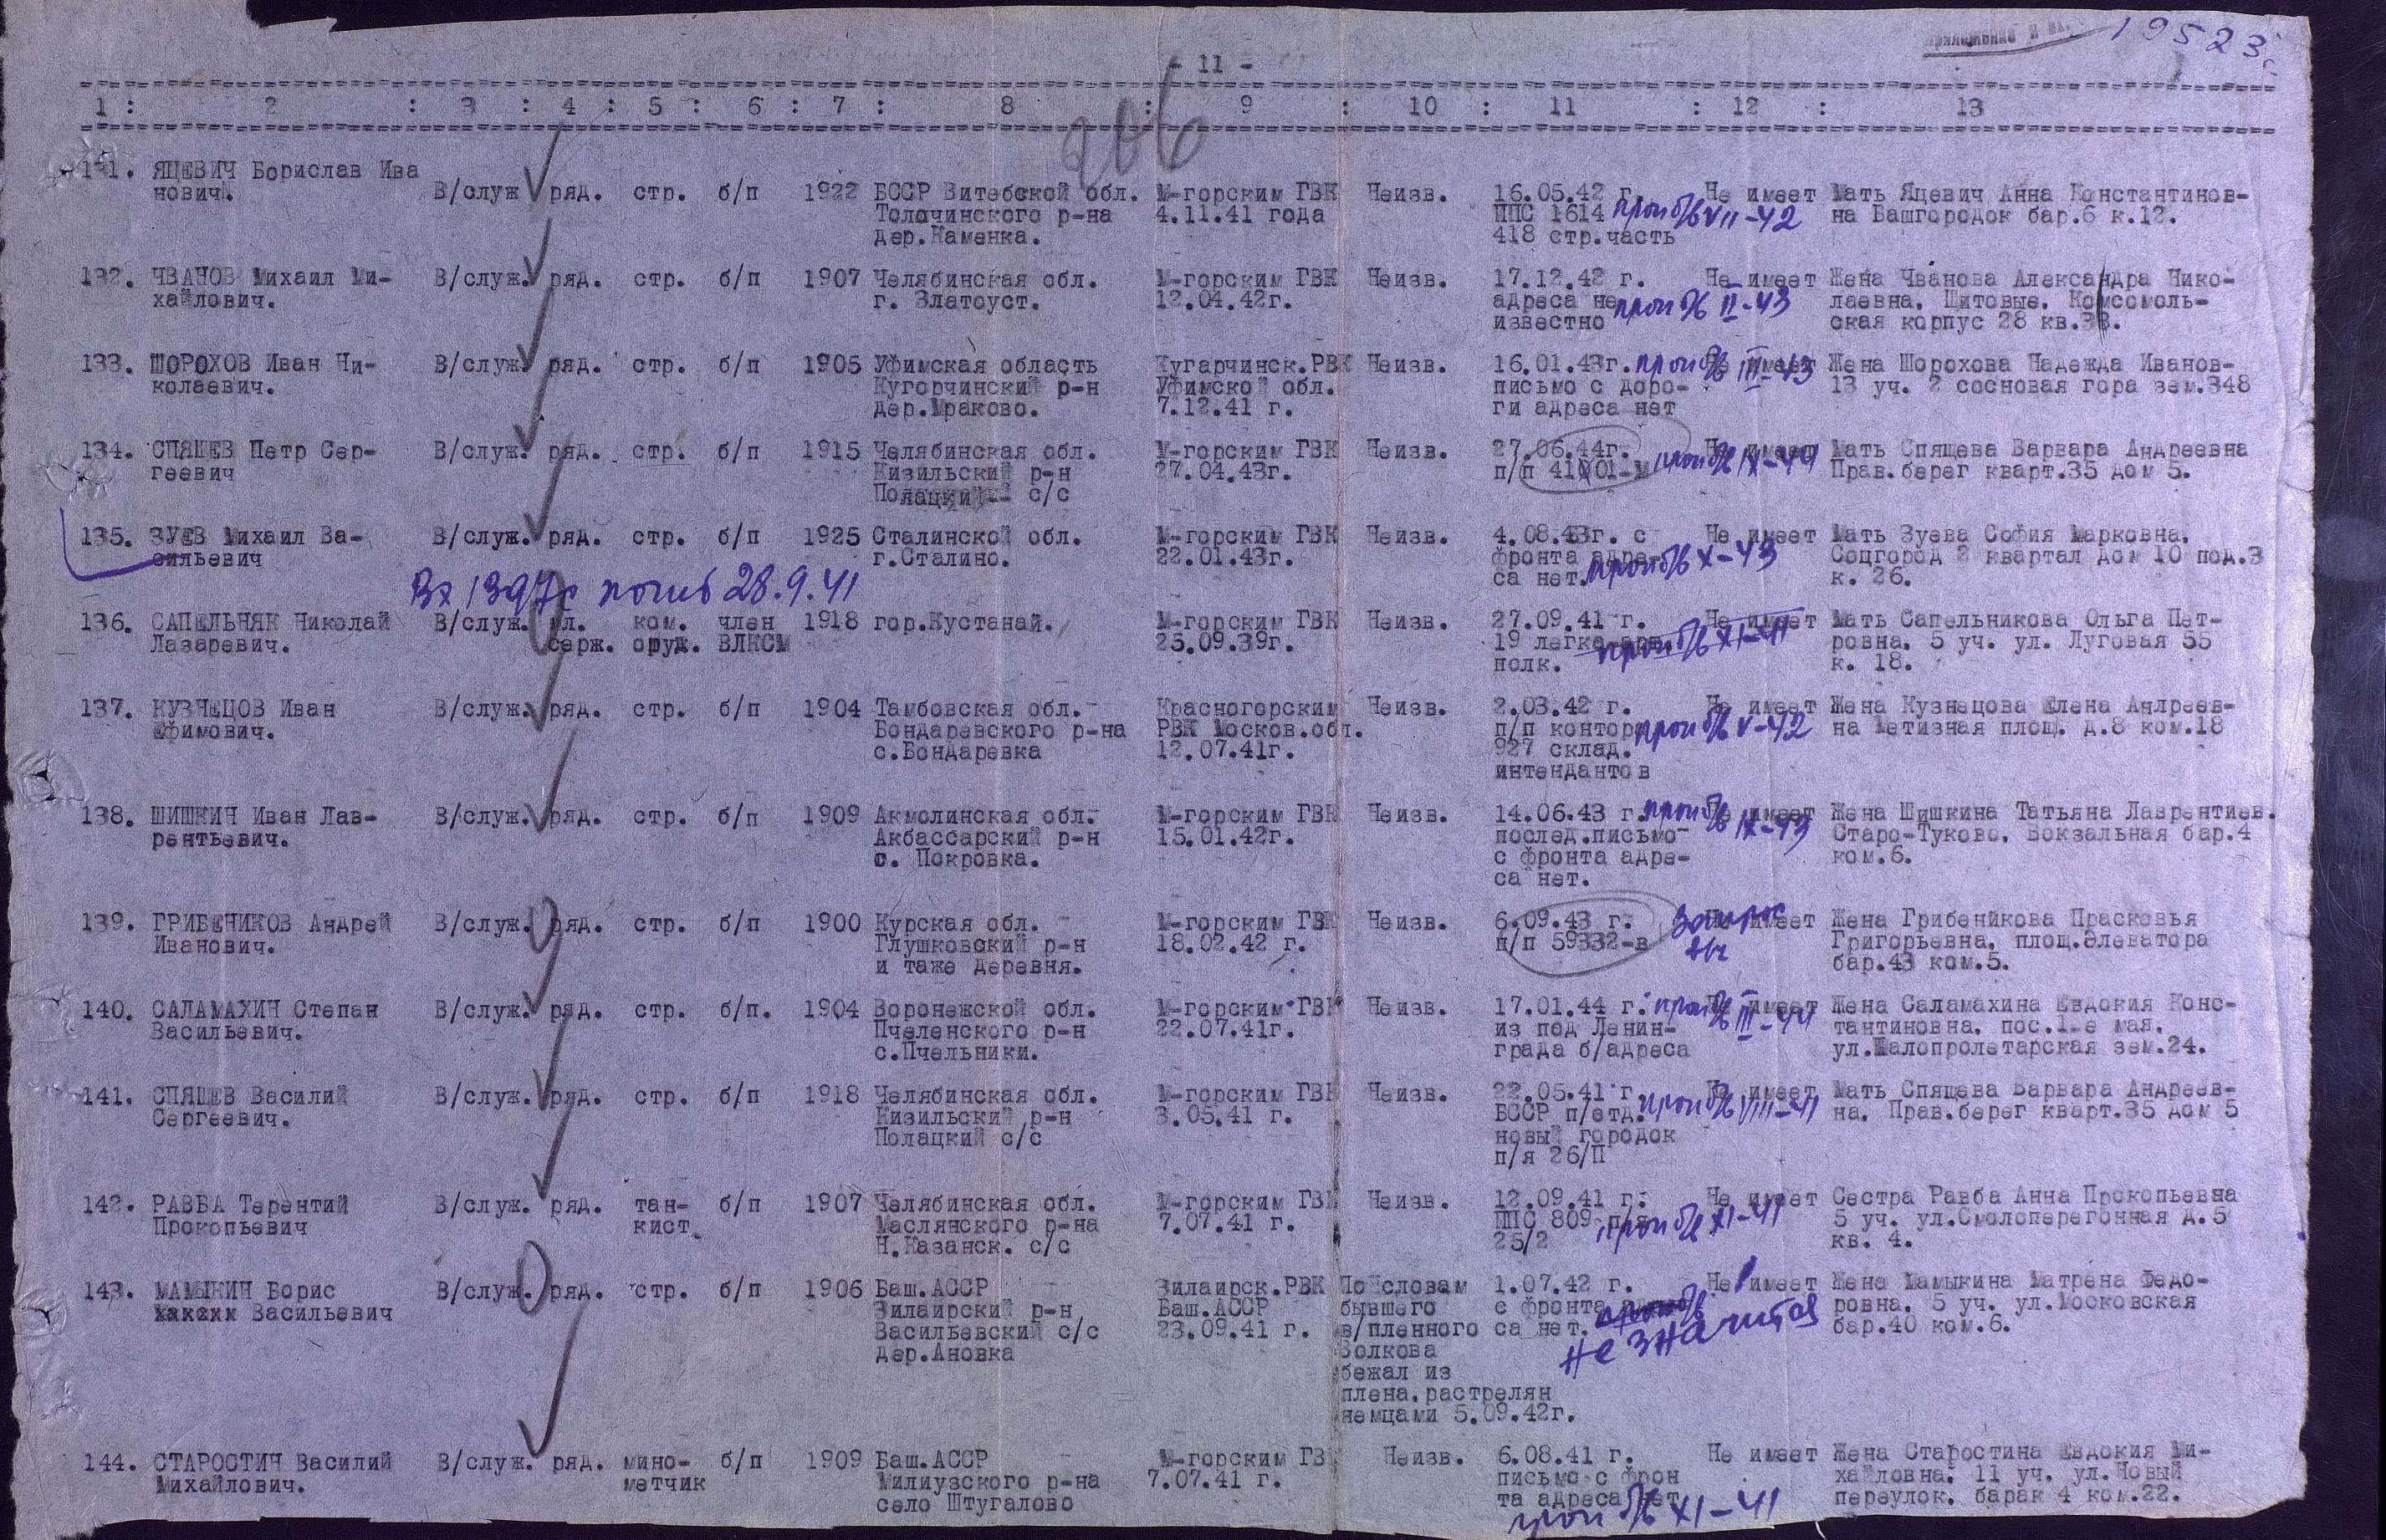 19523с
- 11 -
1 : 2 : 3 : 4 : 5 : 6 : 7 : 8 : 9 : 10 : 11 : 12 : 13
206
131. ЯЦЕВИЧ Борислав Ива
нович. В/служ. ряд. стр. б/п 1922 БССР Витебской обл. М-горским ГВК Неизв. 16.05.42 г. Не имеет Мать Яцевич Анна Константинов-
Толочинского р-на 4.11.41 года ППС 1614 проп б/в VII-42 на Башгородок бар.6 к.12.
дер.Каменка. 418 стр.часть
132. ЧВАНОВ Михаил Ми- В/служ. ряд. стр. б/п 1907 Челябинская обл. М-горским ГВК Неизв. 17.12.42 г. Не имеет Жена Чванова Александра Нико-
хайлович. г. Златоуст. 12.04.42г. адреса не проп б/в II-43 лаевна. Щитовые. Комсомоль-
известно ская корпус 28 кв.38.
133. ШОРОХОВ Иван Ни- В/служ. ряд. стр. б/п 1905 Уфимская область Кугарчинск.РВК Неизв. 16.01.43г. проп б/в III-43 Не имеет Жена Шорохова Надежда Иванов-
колаевич. Кугорчинский р-н Уфимской обл. письмо с доро- 13 уч. 2 сосновая гора зем.348
дер.Мраково. 7.12.41 г. ги адреса нет
134. СПЯЩЕВ Петр Сер- В/служ. ряд. стр. б/п 1915 Челябинская обл. М-горским ГВК Неизв. 27.06.44г. Не имеет Мать Спящева Варвара Андреевна
геевич Кизильский р-н 27.04.43г. п/п 41001-М проп б/в IX-44 Прав.берег кварт.35 дом 5.
Полацкий с/с
135. ЗУЕВ Михаил Ва- В/служ. ряд. стр. б/п 1925 Сталинской обл. М-горским ГВК Неизв. 4.08.43г. с Не имеет Мать Зуева София Марковна.
сильевич г.Сталино. 22.01.43г. фронта адре- Соцгород 2 квартал дом 10 под.3
са нет. проп б/в X-43 к. 26.
Вх 1397с погиб 28.9.41
136. САПЕЛЬНЯК Николай В/служ. мл. ком. член 1918 гор.Кустанай. М-горским ГВК Неизв. 27.09.41 г. Не имеет Мать Сапельникова Ольга Пет-
Лазаревич. серж. оруд. ВЛКСМ 25.09.39г. 19 легко-арт. проп б/в XI-41 ровна. 5 уч. ул. Луговая 55
полк. к. 18.
137. КУЗНЕЦОВ Иван В/служ. ряд. стр. б/п 1904 Тамбовская обл. Красногорским Неизв. 2.03.42 г. Не имеет Жена Кузнецова Елена Андреев-
Ефимович. Бондаревского р-на РВК Москов.обл. п/п контора проп б/в V-42 на Метизная площ. д.8 ком.18
с.Бондаревка 12.07.41г. 927 склад.
интендантов
138. ШИШКИЧ Иван Лав- В/служ. ряд. стр. б/п 1909 Акмолинская обл. М-горским ГВК Неизв. 14.06.43 г. проп б/в IX-43 Не имеет Жена Шишкина Татьяна Лаврентиев.
рентьевич. Акбассарский р-н 15.01.42г. послед.письмо Старо-Туково. Вокзальная бар.4
с. Покровка. с фронта адре- ком.6.
са нет.
139. ГРИБЕНИКОВ Андрей В/служ. ряд. стр. б/п 1900 Курская обл. М-горским ГВК Неизв. 6.09.43 г. Запрос Не имеет Жена Грибеникова Прасковья
Иванович. Глушковский р-н 18.02.42 г. п/п 59332-в Григорьевна. площ.Элеватора
и таже деревня. бар.43 ком.5.
140. САЛАМАХИН Степан В/служ. ряд. стр. б/п. 1904 Воронежской обл. М-горским ГВК Неизв. 17.01.44 г. проп б/в III-44 Не имеет Жена Саламахина Евдокия Конс-
Васильевич. Пчеленского р-н 22.07.41г. из под Ленин- тантиновна. пос.1-е мая.
с.Пчельники. града б/адреса ул.Малопролетарская зем.24.
141. СПЯЩЕВ Василий В/служ. ряд. стр. б/п 1918 Челябинская обл. М-горским ГВК Неизв. 22.05.41 г. Не имеет Мать Спящева Варвара Андреев-
Сергеевич. Кизильский р-н 3.05.41 г. БССР п/отд. проп б/в VIII-41 на. Прав.берег кварт.35 дом 5
Полацкий с/с новый городок
п/я 26/П
142. РАВБА Терентий В/служ. ряд. тан- б/п 1907 Челябинская обл. М-горским ГВК Неизв. 12.09.41 г. Не имеет Сестра Равба Анна Прокопьевна
Прокопьевич кист. Маслянского р-на 7.07.41 г. ППС 809 п/я проп б/в XI-41 5 уч. ул.Смолоперегонная д.5
Н.Казанск. с/с 25/2 кв. 4.
143. МАМЫКИН Борис В/служ. ряд. стр. б/п 1906 Баш.АССР Зилаирск.РВК По словам 1.07.42 г. Не имеет Жена Мамыкина Матрена Федо-
Васильевич Зилаирский р-н Баш.АССР бывшего с фронта ровна. 5 уч. ул.Московская
Васильевский с/с 23.09.41 г. в/пленного са нет. не значится бар.40 ком.6.
дер.Ановка Волкова
бежал из
плена.растрелян
немцами 5.09.42г.
144. СТАРОСТИЧ Василий В/служ. ряд. мино- б/п 1909 Баш.АССР М-горским ГВ Неизв. 6.08.41 г. Не имеет Жена Старостина Евдокия Ми-
Михайлович. метчик Милиузского р-на 7.07.41 г. письмо с фрон хайловна. 11 уч. ул.Новый
село Штугалово та адреса нет переулок. барак 4 ком.22.
проп б/в XI-41